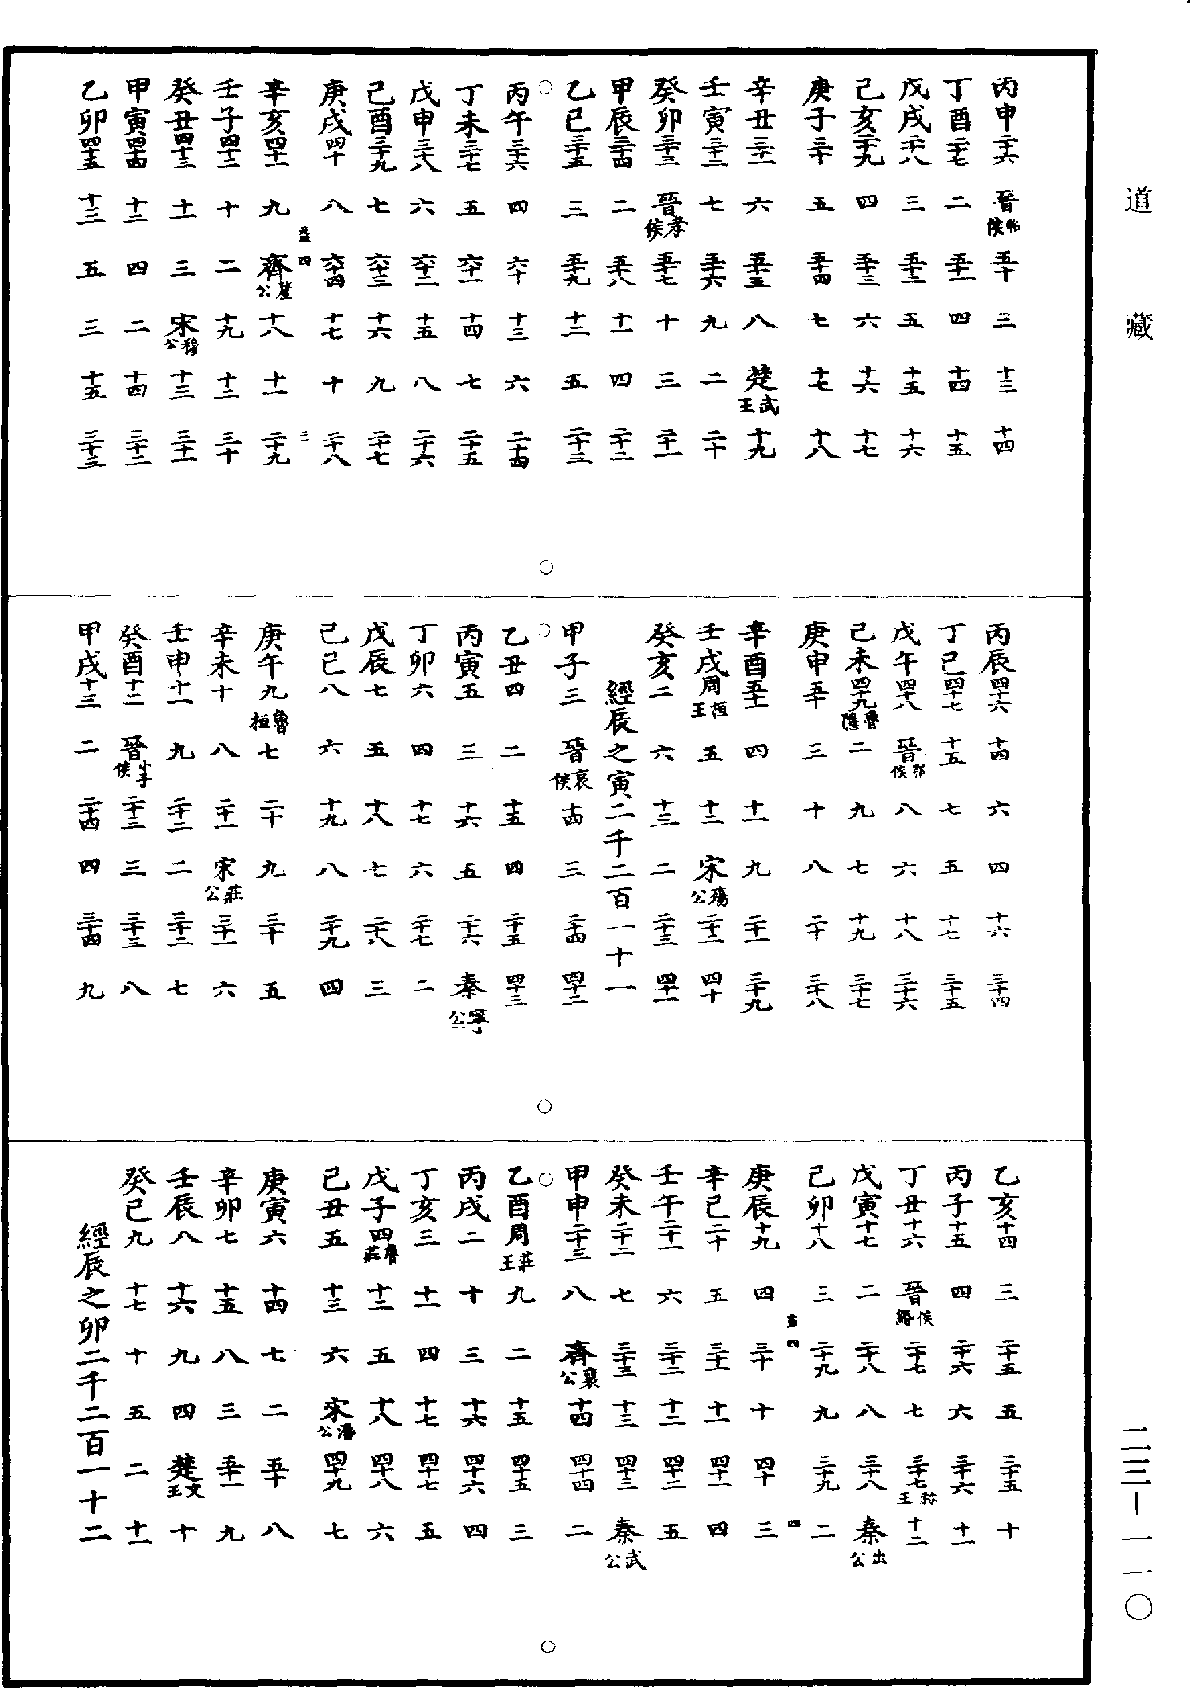 道藏
丙申二十六 晉昭侯 五十 三 十三 十四
丁酉二十七 二 五十一 四 十四 十五
戊戌二十八 三 五十二 五 十五 十六
己亥二十九 四 五十三 六 十六 十七
庚子三十 五 五十四 七 十七 十八
辛丑三十一 六 五十五 八 楚武王 十九
壬寅三十二 七 五十六 九 二 二十
癸卯三十三 晉孝侯 五十七 十 三 二十一
甲辰三十四 二 五十八 十一 四 二十二
○
乙巳三十五 三 五十九 十二 五 二十三
丙午三十六 四 六十 十三 六 二十四
丁未三十七 五 六十一 十四 七 二十五
戊申三十八 六 六十二 十五 八 二十六
己酉三十九 七 六十三 十六 九 二十七
庚戌四十 八 六十四 十七 十 二十八
四 二
辛亥四十一 九 齊釐公 十八 十一 二十九
壬子四十二 十 二 十九 十二 三十
癸丑四十三 十一 三 宋穆公 十三 三十一
甲寅四十四 十二 四 二 十四 三十二
乙卯四十五 十三 五 三 十五 三十三
○
丙辰四十六 十四 六 四 十六 三十四
丁巳四十七 十五 七 五 十七 三十五
戊午四十八 晉鄂侯 八 六 十八 三十六
己未四十九魯隱 二 九 七 十九 三十七
庚申五十 三 十 八 二十 三十八
辛酉五十一 四 十一 九 二十一 三十九
壬戌周桓王 五 十二 宋殤公 二十二 四十
癸亥二 六 十三 二 二十三 四十一
經辰之寅二千二百一十一
甲子三 晉哀侯 十四 三 二十四 四十二
○
乙丑四 二 十五 四 二十五 四十三
丙寅五 三 十六 五 二十六 秦寧公
丁卯六 四 十七 六 二十七 二
戊辰七 五 十八 七 二十八 三
己巳八 六 十九 八 二十九 四
庚午九魯桓 七 二十 九 三十 五
辛未十 八 二十一 宋莊公 三十一 六
壬申十一 九 二十二 二 三十二 七
癸酉十二 晉小子侯 二十三 三 三十三 八
甲戌十三 二 二十四 四 三十四 九
○
乙亥十四 三 二十五 五 三十五 十
丙子十五 四 二十六 六 三十六 十一
丁丑十六 晉侯緡 二十七 七 三十七稱王 十二
戊寅十七 二 二十八 八 三十八 秦出公
己卯十八 三 二十九 九 三十九 二
四 四
庚辰十九 四 三十 十 四十 三
辛巳二十 五 三十一 十一 四十一 四
壬午二十一 六 三十二 十二 四十二 五
癸未二十二 七 三十三 十三 四十三 秦武公
甲申二十三 八 齊襄公 十四 四十四 二
○
乙酉周莊王 九 二 十五 四十五 三
丙戌二 十 三 十六 四十六 四
丁亥三 十一 四 十七 四十七 五
戊子四魯莊 十二 五 十八 四十八 六
己丑五 十三 六 宋湣公 四十九 七
庚寅六 十四 七 二 五十 八
辛卯七 十五 八 三 五十一 九
壬辰八 十六 九 四 楚文王 十
癸巳九 十七 十 五 二 十一
經辰之卯二千二百一十二
○
二三—一一〇